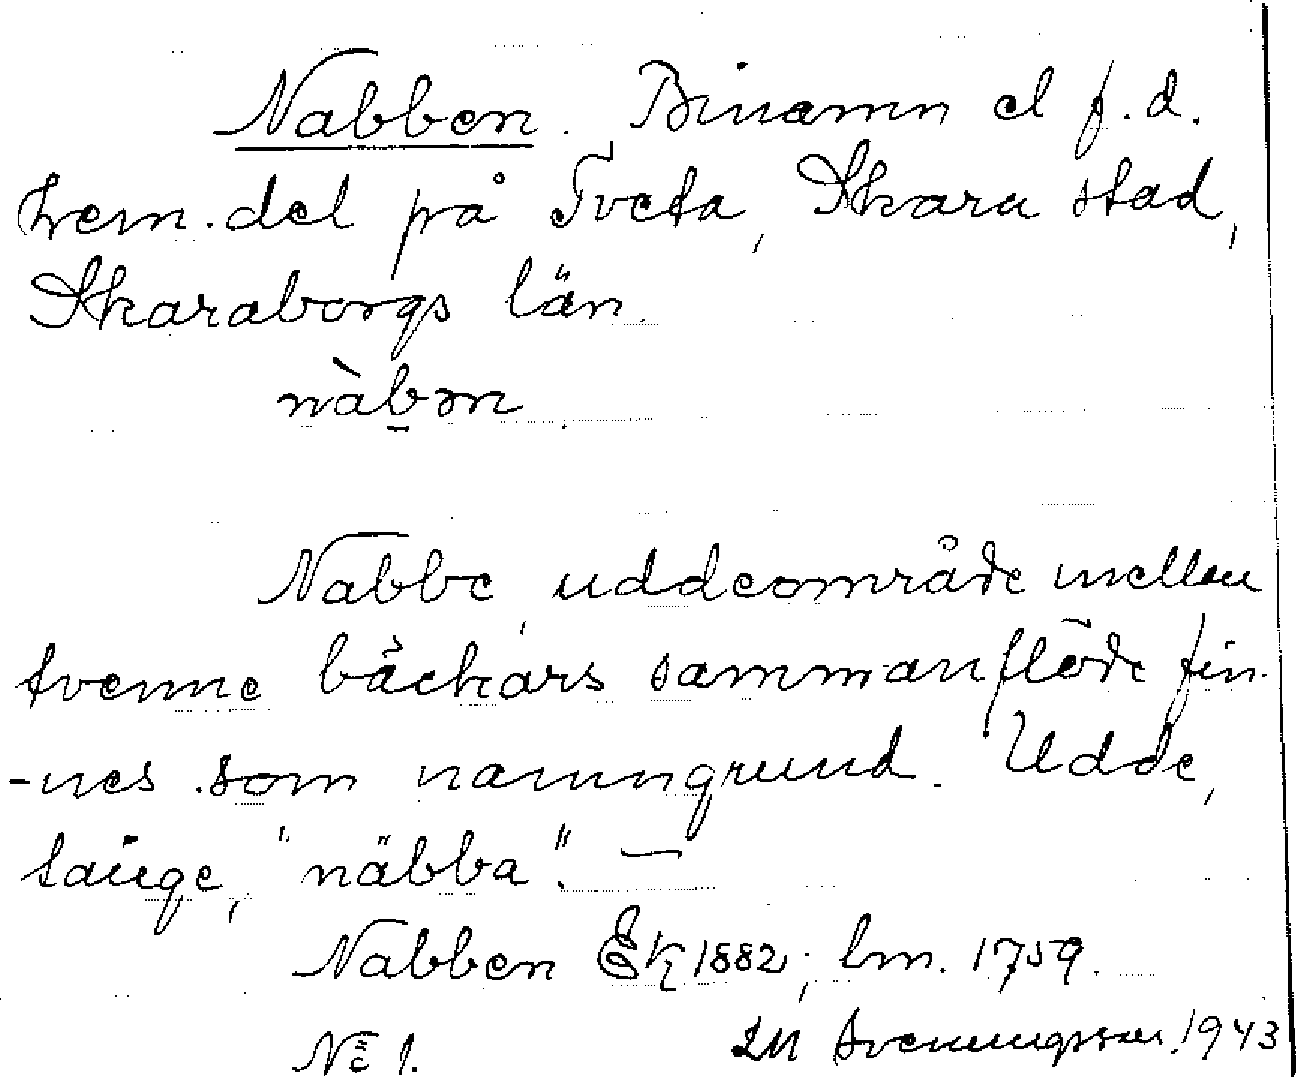 Nabben. Binamn el f.d.
hem.del på Tveta, Skara stad,
Skaraborgs län.
nàb̠ən
Nabbe, uddeområde mellan
tvenne bäckars sammanflöde fin-
-nes som namngrund. Udde,
tånge, "näbba". —
Nabben Ek 1882; lm. 1759.
No 1. Sveningsson. 1943